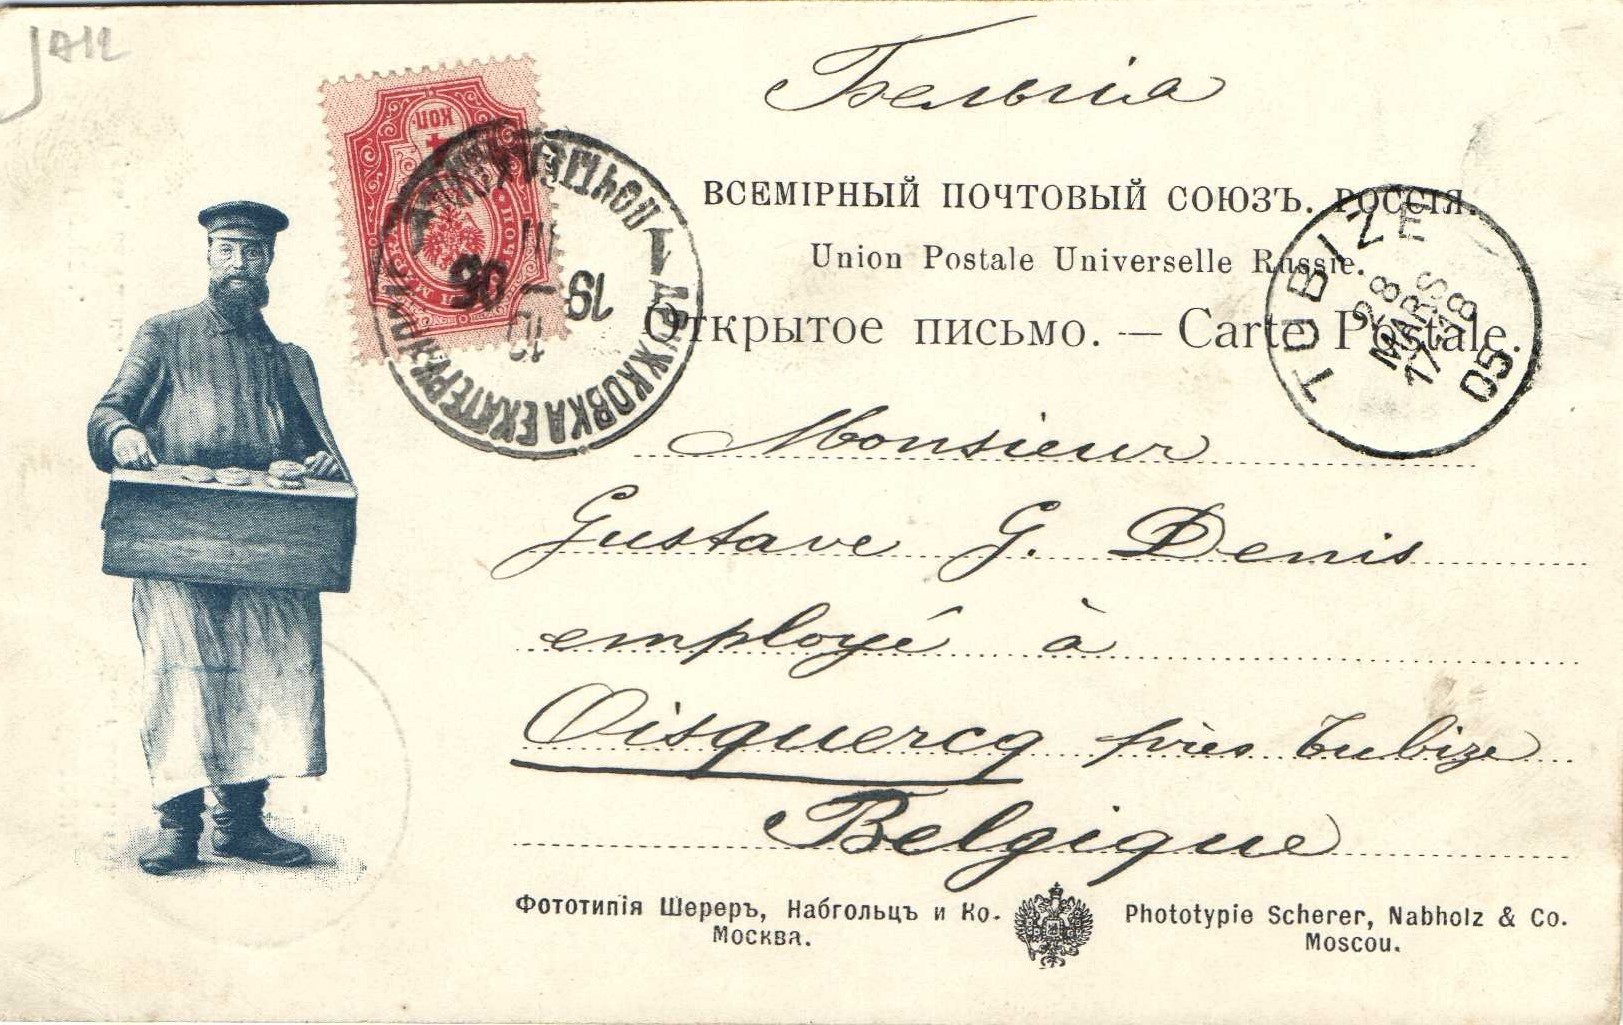 Бельгія
ВСЕМІРНЫЙ ПОЧТОВЫЙ СОЮЗЪ. РОССІЯ.
Union Postale Universelle Russie.
Открытое письмо. — Carte Postale.
КОП
ДРУЖКОВКА
19 05
TUBIZE
28
MARS
17-18
05
Monsieur
Gustave G. Denis
employé à
Oisquercq près Tubize
Belgique
Фототипія Шереръ, Набгольцъ и Ко.
Москва.
Phototypie Scherer, Nabholz & Co.
Moscou.